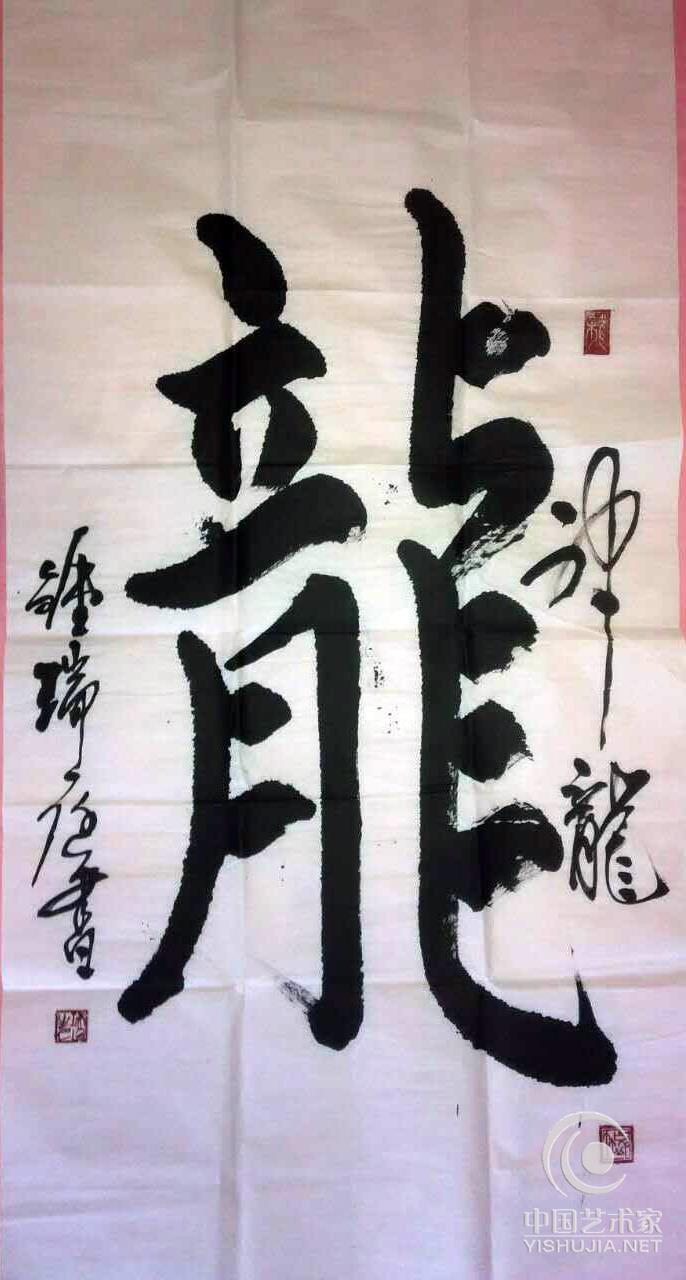 神龍
龍
鍾瑞庭書
中国艺术家
YISHUJIA.NET